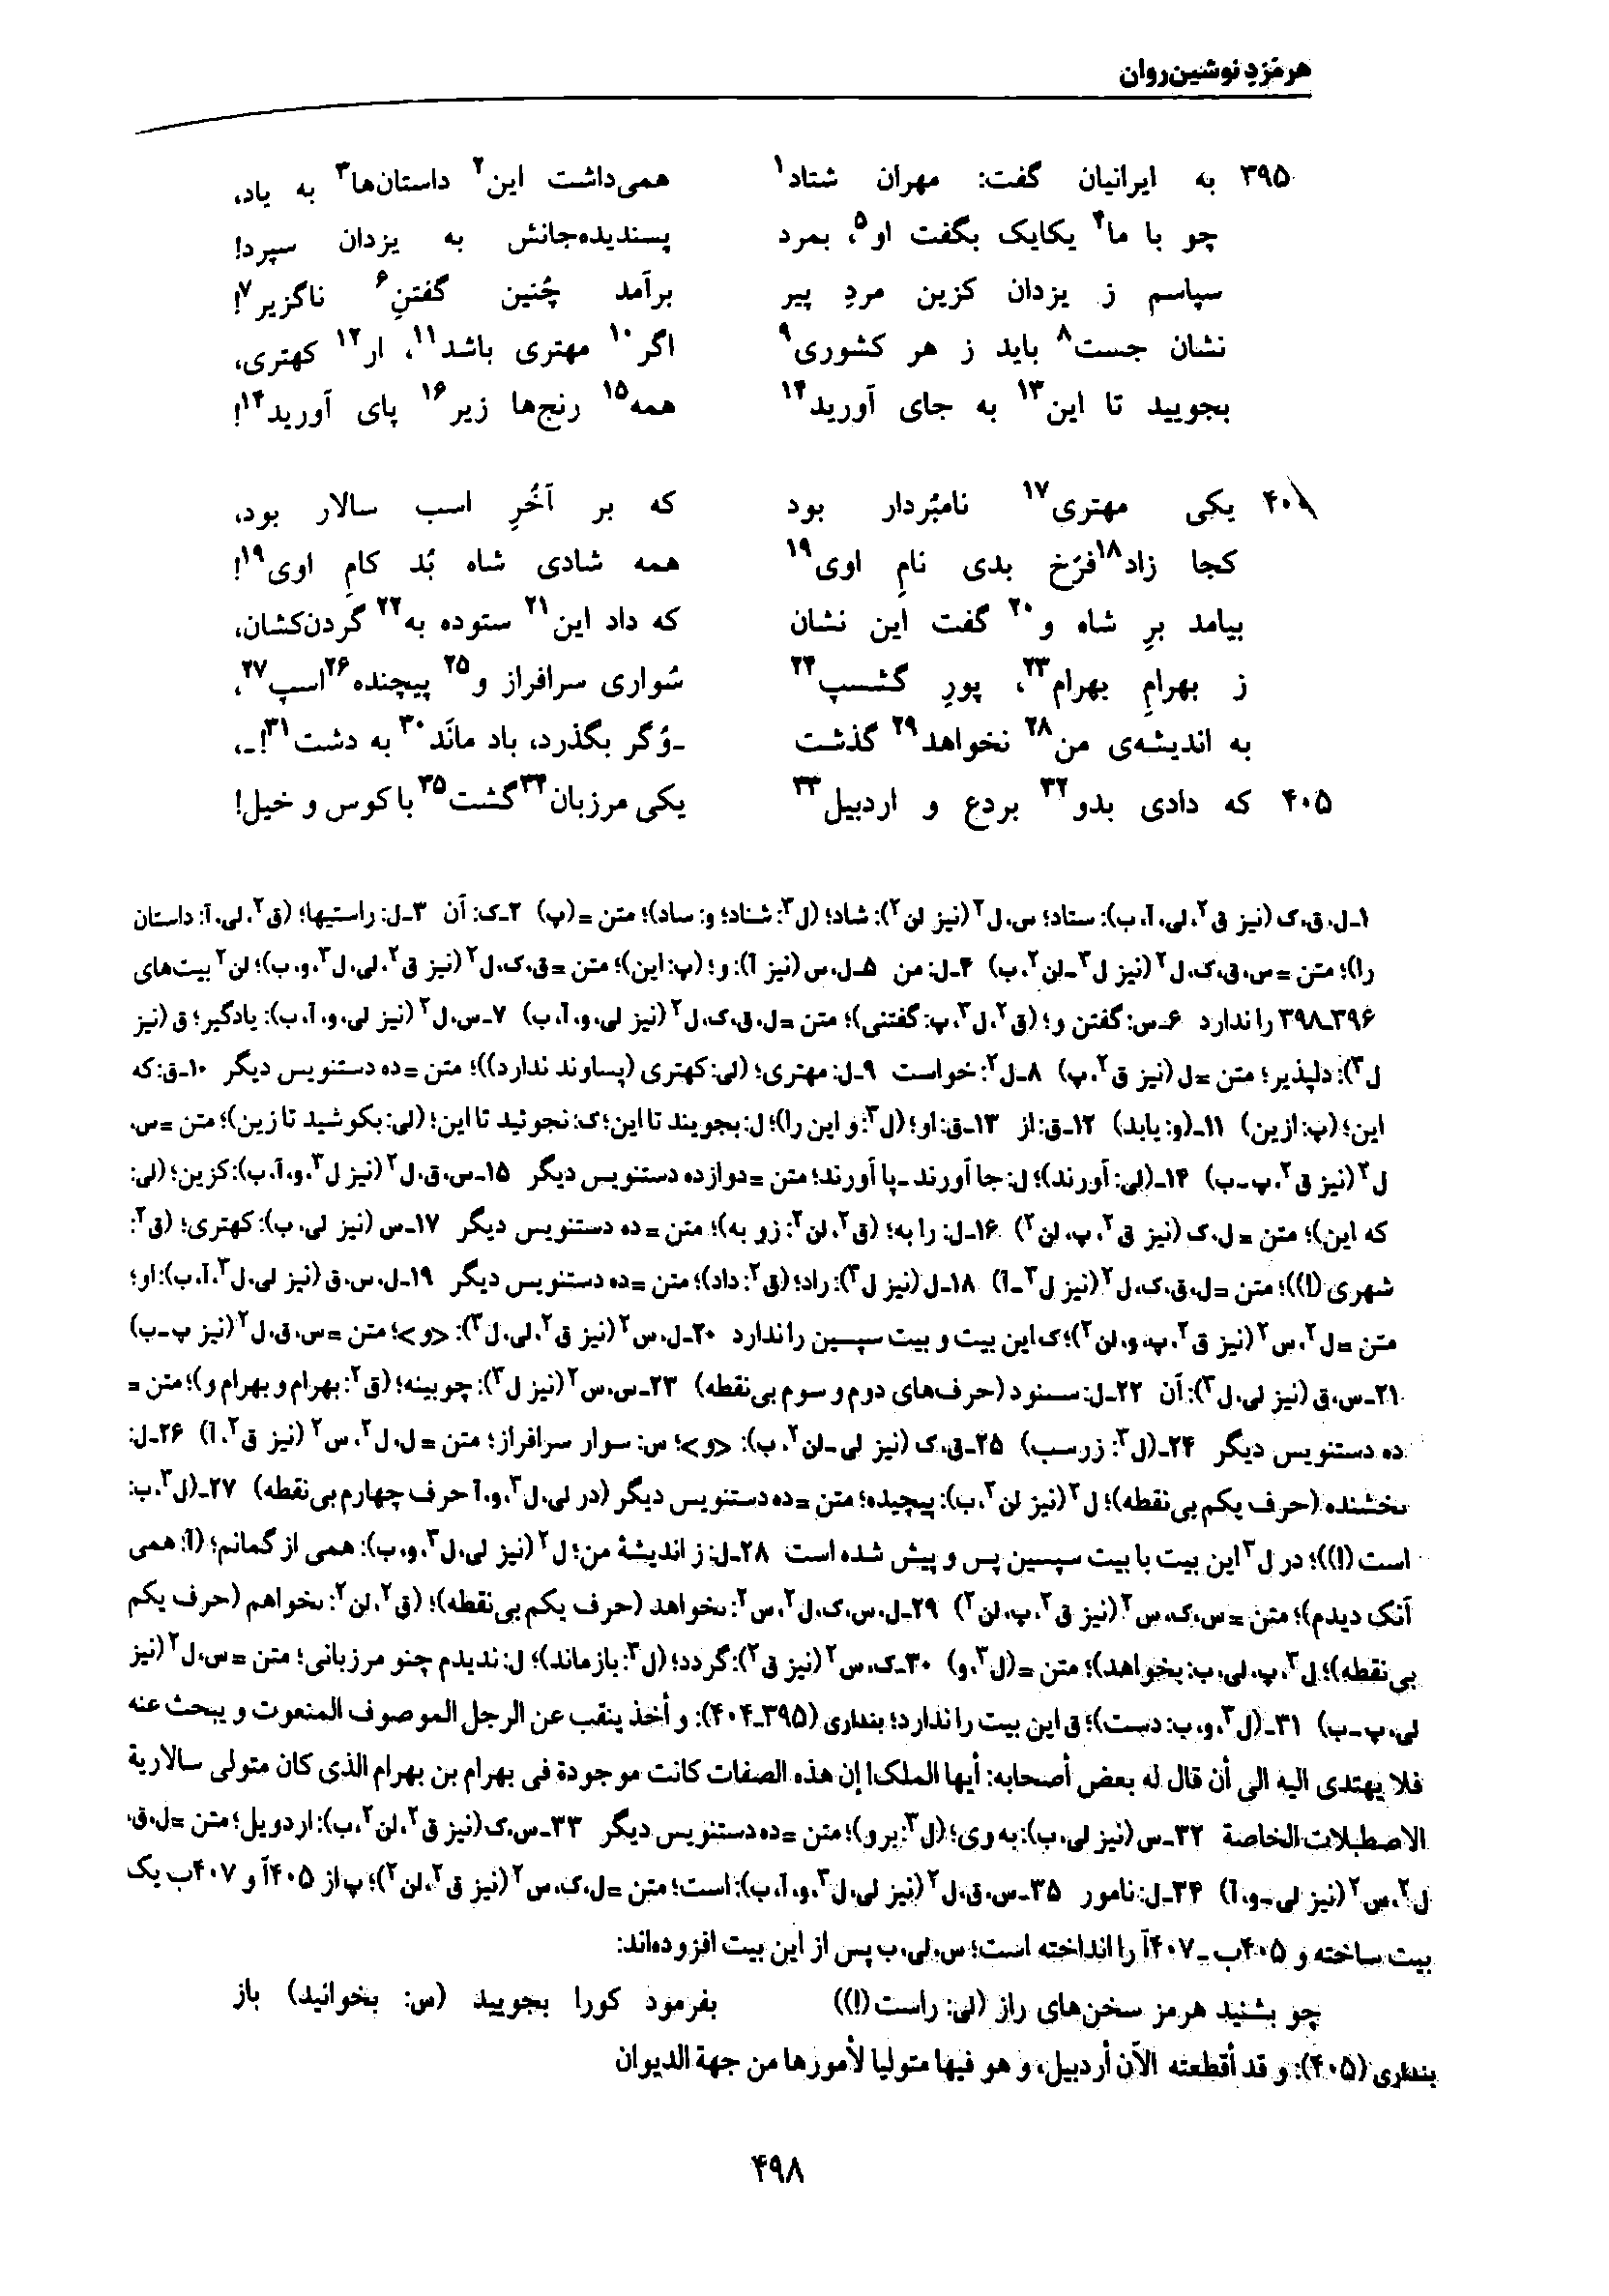 هرمَزدِ نوشین‌روان
۳۹۵ به ایرانیان گفت: مهران شتاد۱ همی‌داشت این۲ داستان‌ها۳ به یاد،
چو با ما۴ یکایک بگفت او۵، بمرد پسندیده‌جانش به یزدان سپرد!
سپاسم ز یزدان کزین مردِ پیر برآمد چُنین گفتنِ۶ ناگزیر۷!
نشان جست۸ باید ز هر کشوری۹ اگر۱۰ مهتری باشد۱۱، ار۱۲ کهتری،
بجویید تا این۱۳ به جای آورید۱۴ همه۱۵ رنج‌ها زیر۱۶ پای آورید۱۴!
۴۰۰ یکی مهتری۱۷ نامبُردار بود که بر آخُرِ اسب سالار بود،
کجا زاد۱۸فرّخ بدی نامِ اوی۱۹ همه شادی شاه بُد کامِ اوی۱۹!
بیامد برِ شاه و۲۰ گفت این نشان که داد این۲۱ ستوده به۲۲ گردن‌کشان،
ز بهرامِ بهرام۲۳، پورِ گشسپ۲۴ سُواری سرافراز و۲۵ پیچنده۲۶اسپ۲۷،
به اندیشه‌ی من۲۸ نخواهد۲۹ گذشت ـوُگر بگذرد، باد مانَد۳۰ به دشت۳۱!ـ،
۴۰۵ که دادی بدو۳۲ بردع و اردبیل۳۳ یکی مرزبان۳۴ گشت۳۵ با کوس و خیل!
۱ـ ل، ق، ک (نیز ق۲، لی، آ، ب): ستاد؛ س، ل۲ (نیز لن۲): شاد؛ (ل۳: شناد؛ و: ساد)؛ متن = (پ) ۲ـ ک: آن ۳ـ ل: راستیها؛ (ق۲، لی، آ: داستان
را)؛ متن = س، ق، ک، ل۲ (نیز ل۳ـ لن۲، ب) ۴ـ ل: من ۵ـ ل، س (نیز آ): و؛ (پ: این)؛ متن = ق، ک، ل۲ (نیز ق۲، لی، ل۳، و، ب)؛ لن۲ بیت‌های
۳۹۶ـ۳۹۸ را ندارد ۶ـ س: گفتن و؛ (ق۲، ل۳، پ: گفتنی)؛ متن = ل، ق، ک، ل۲ (نیز لی، و، آ، ب) ۷ـ س، ل۲ (نیز لی، و، آ، ب): یادگیر؛ ق (نیز
ل۳): دلپذیر؛ متن = ل (نیز ق۲، پ) ۸ـ ل۲: خواست ۹ـ ل: مهتری؛ (لی: کهتری (پساوند ندارد))؛ متن = ده دستنویس دیگر ۱۰ـ ق: که
این؛ (پ: ازین) ۱۱ـ (و: یابد) ۱۲ـ ق: از ۱۳ـ ق: او؛ (ل۳: و این را)؛ ل: بجویند تا این؛ ک: نجوئید تا این؛ (لی: بکوشید تا زین)؛ متن = س،
ل۲ (نیز ق۲، پ ـ ب) ۱۴ـ (لی: آورند)؛ ل: جا آورند ـ پا آورند؛ متن = دوازده دستنویس دیگر ۱۵ـ س، ق، ل۲ (نیز ل۳، و، آ، ب): کزین؛ (لی:
که این)؛ متن = ل، ک (نیز ق۲، پ، لن۲) ۱۶ـ ل: را به؛ (ق۲، لن۲: زو به)؛ متن = ده دستنویس دیگر ۱۷ـ س (نیز لی، ب): کهتری؛ (ق۲:
شهری (!))؛ متن = ل، ق، ک، ل۲ (نیز ل۳ـ آ) ۱۸ـ ل (نیز ل۳): راد؛ (ق۲: داد)؛ متن = ده دستنویس دیگر ۱۹ـ ل، س، ق (نیز لی، ل۳، آ، ب): او؛
متن = ل۲، س۲ (نیز ق۲، پ، و، لن۲)؛ ک این بیت و بیت سپسین را ندارد ۲۰ـ ل، س۲ (نیز ق۲، لی، ل۳): <و>؛ متن = س، ق، ل۲ (نیز پ ـ ب)
۲۱ـ س، ق (نیز لی، ل۳): آن ۲۲ـ ل: سـنود (حرف‌های دوم و سوم بی‌نقطه) ۲۳ـ س، س۲ (نیز ل۳): چوبینه؛ (ق۲: بهرام و بهرام و)؛ متن =
ده دستنویس دیگر ۲۴ـ (ل۳: زرسب) ۲۵ـ ق، ک (نیز لی ـ لن۲، ب): <و>؛ س: سوار سرافراز؛ متن = ل، ل۲، س۲ (نیز ق۲، آ) ۲۶ـ ل:
ىخشنده (حرف یکم بی‌نقطه)؛ ل۲ (نیز لن۲، ب): پیچیده؛ متن = ده دستنویس دیگر (در لی، ل۳، و، آ حرف چهارم بی‌نقطه) ۲۷ـ (ل۳، ب:
است (!))؛ در ل۳ این بیت با بیت سپسین پس و پیش شده است ۲۸ـ ل: ز اندیشهٔ من؛ ل۲ (نیز لی، ل۳، و، ب): همی از گمانم؛ (آ: همی
آنک دیدم)؛ متن = س، ک، س۲ (نیز ق۲، پ، لن۲) ۲۹ـ ل، س، ک، ل۲، س۲: ىخواهد (حرف یکم بی‌نقطه)؛ (ق۲، لن۲: ىخواهم (حرف یکم
بی‌نقطه)؛ ل۳، پ، لی، ب: بخواهد)؛ متن = (ل۳، و) ۳۰ـ ک، س۲ (نیز ق۲): گردد؛ (ل۳: بازماند)؛ ل: ندیدم چنو مرزبانی؛ متن = س، ل۲ (نیز
لی، پ ـ ب) ۳۱ـ (ل۳، و، ب: دست)؛ ق این بیت را ندارد؛ بنداری (۳۹۵ـ۴۰۴): و أخذ ینقب عن الرجل الموصوف المنعوت و یبحث عنه
فلا یهتدی الیه الی أن قال له بعض أصحابه: أیها الملک! إن هذه الصفات کانت موجودة فی بهرام بن بهرام الذی کان متولی سالاریة
الاصطبلات الخاصة ۳۲ـ س (نیز لی، ب): به وی؛ (ل۳: برو)؛ متن = ده دستنویس دیگر ۳۳ـ س، ک (نیز ق۲، لن۲، ب): اردویل؛ متن = ل، ق،
ل۲، س۲ (نیز لی ـ و، آ) ۳۴ـ ل: نامور ۳۵ـ س، ق، ل۲ (نیز لی، ل۳، و، آ، ب): است؛ متن = ل، ک، س۲ (نیز ق۲، لن۲)؛ پ از ۴۰۵آ و ۴۰۷ب یک
بیت ساخته و ۴۰۵ب ـ ۴۰۷آ را انداخته است؛ س، لی، ب پس از این بیت افزوده‌اند:
چو بشنید هرمز سخن‌های راز (لی: راست (!)) بفرمود کورا بجویید (س: بخوانید) باز
بنداری (۴۰۵): و قد أقطعته الآن أردبیل، و هو فیها متولیا لأمورها من جهة الدیوان
۴۹۸